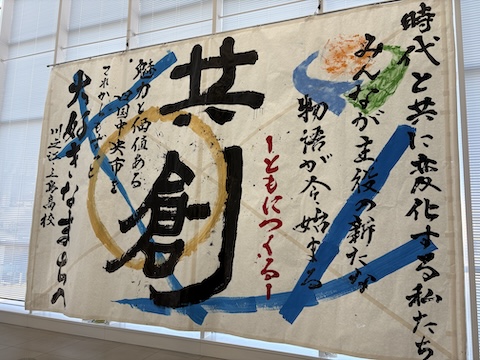 時代と共に変化する私たち
みんなが主役の新たな
物語が今始まる
ーともにつくるー
共創
魅力と価値ある
四国中央市を
これからもずっと
大好きなまちへ
川之江三島高校